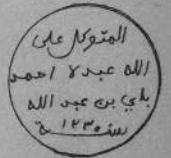 المتوكل على
الله عبده احمد
بلي بن عبد الله
سنة ١٢٣٠